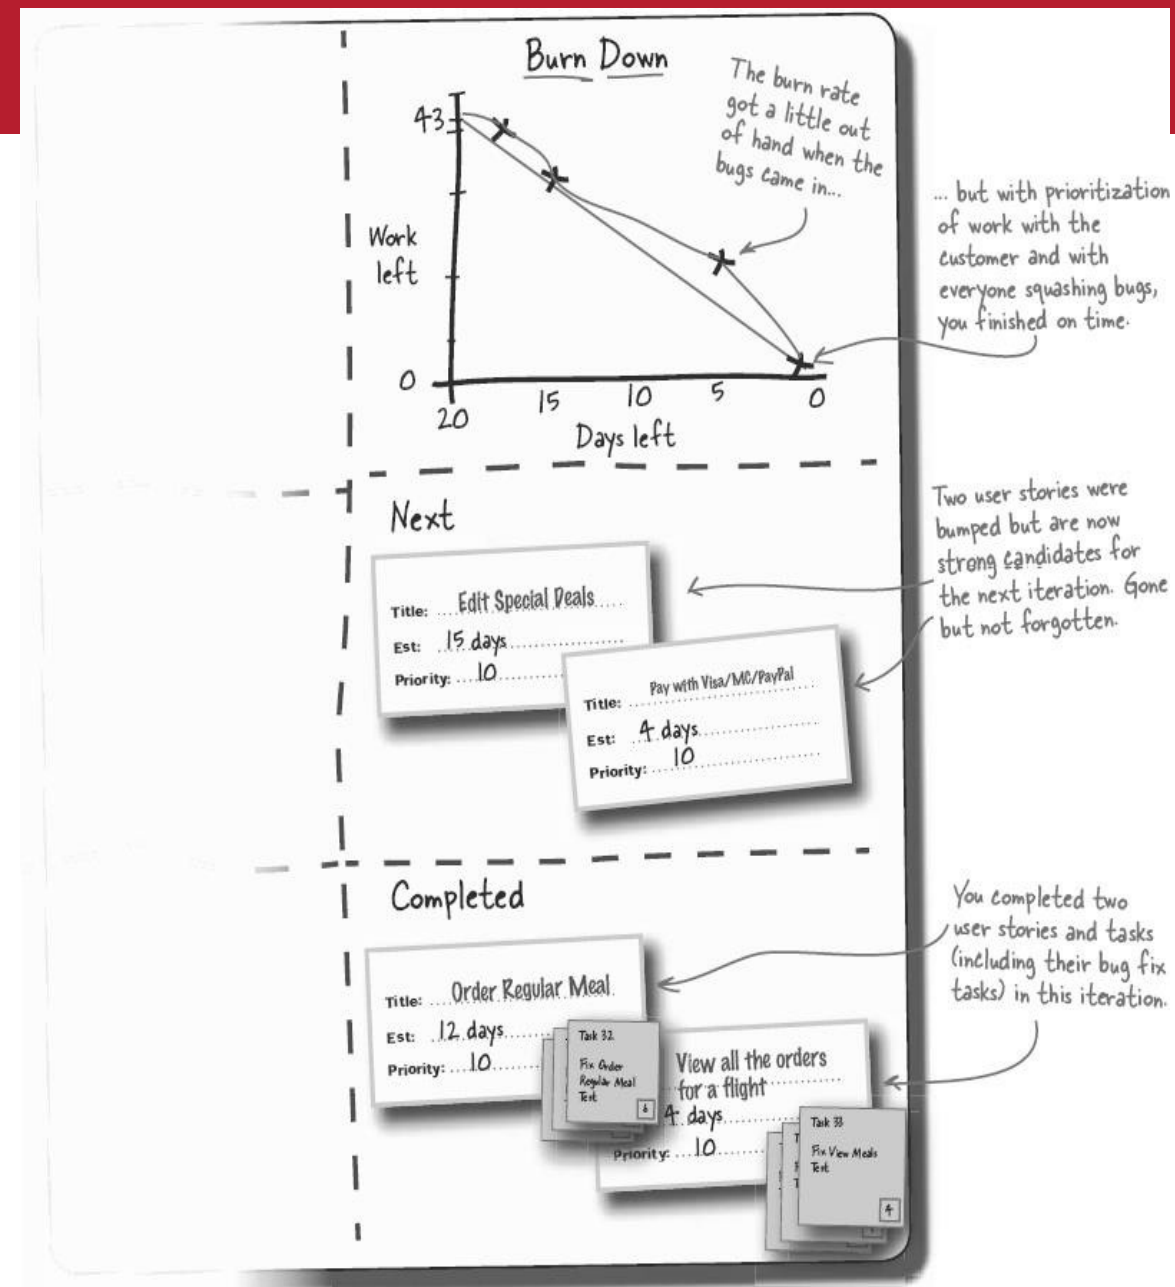 Burn Down
The burn rate
got a little out
of hand when the
bugs came in...
43
Work
left
0
20
15
10
5
0
Days left
... but with prioritization
of work with the
customer and with
everyone squashing bugs,
you finished on time.
Next
Title: Edit Special Deals
Est: 15 days
Priority: 10
Title: Pay with Visa/MC/PayPal
Est: 4 days
Priority: 10
Two user stories were
bumped but are now
strong candidates for
the next iteration. Gone
but not forgotten.
Completed
Title: Order Regular Meal
Est: 12 days
Priority: 10
Task 32
Fix Order
Regular Meal
Test
6
View all the orders
for a flight
4 days
Priority: 10
Task 33
Fix View Meals
Test
4
You completed two
user stories and tasks
(including their bug fix
tasks) in this iteration.